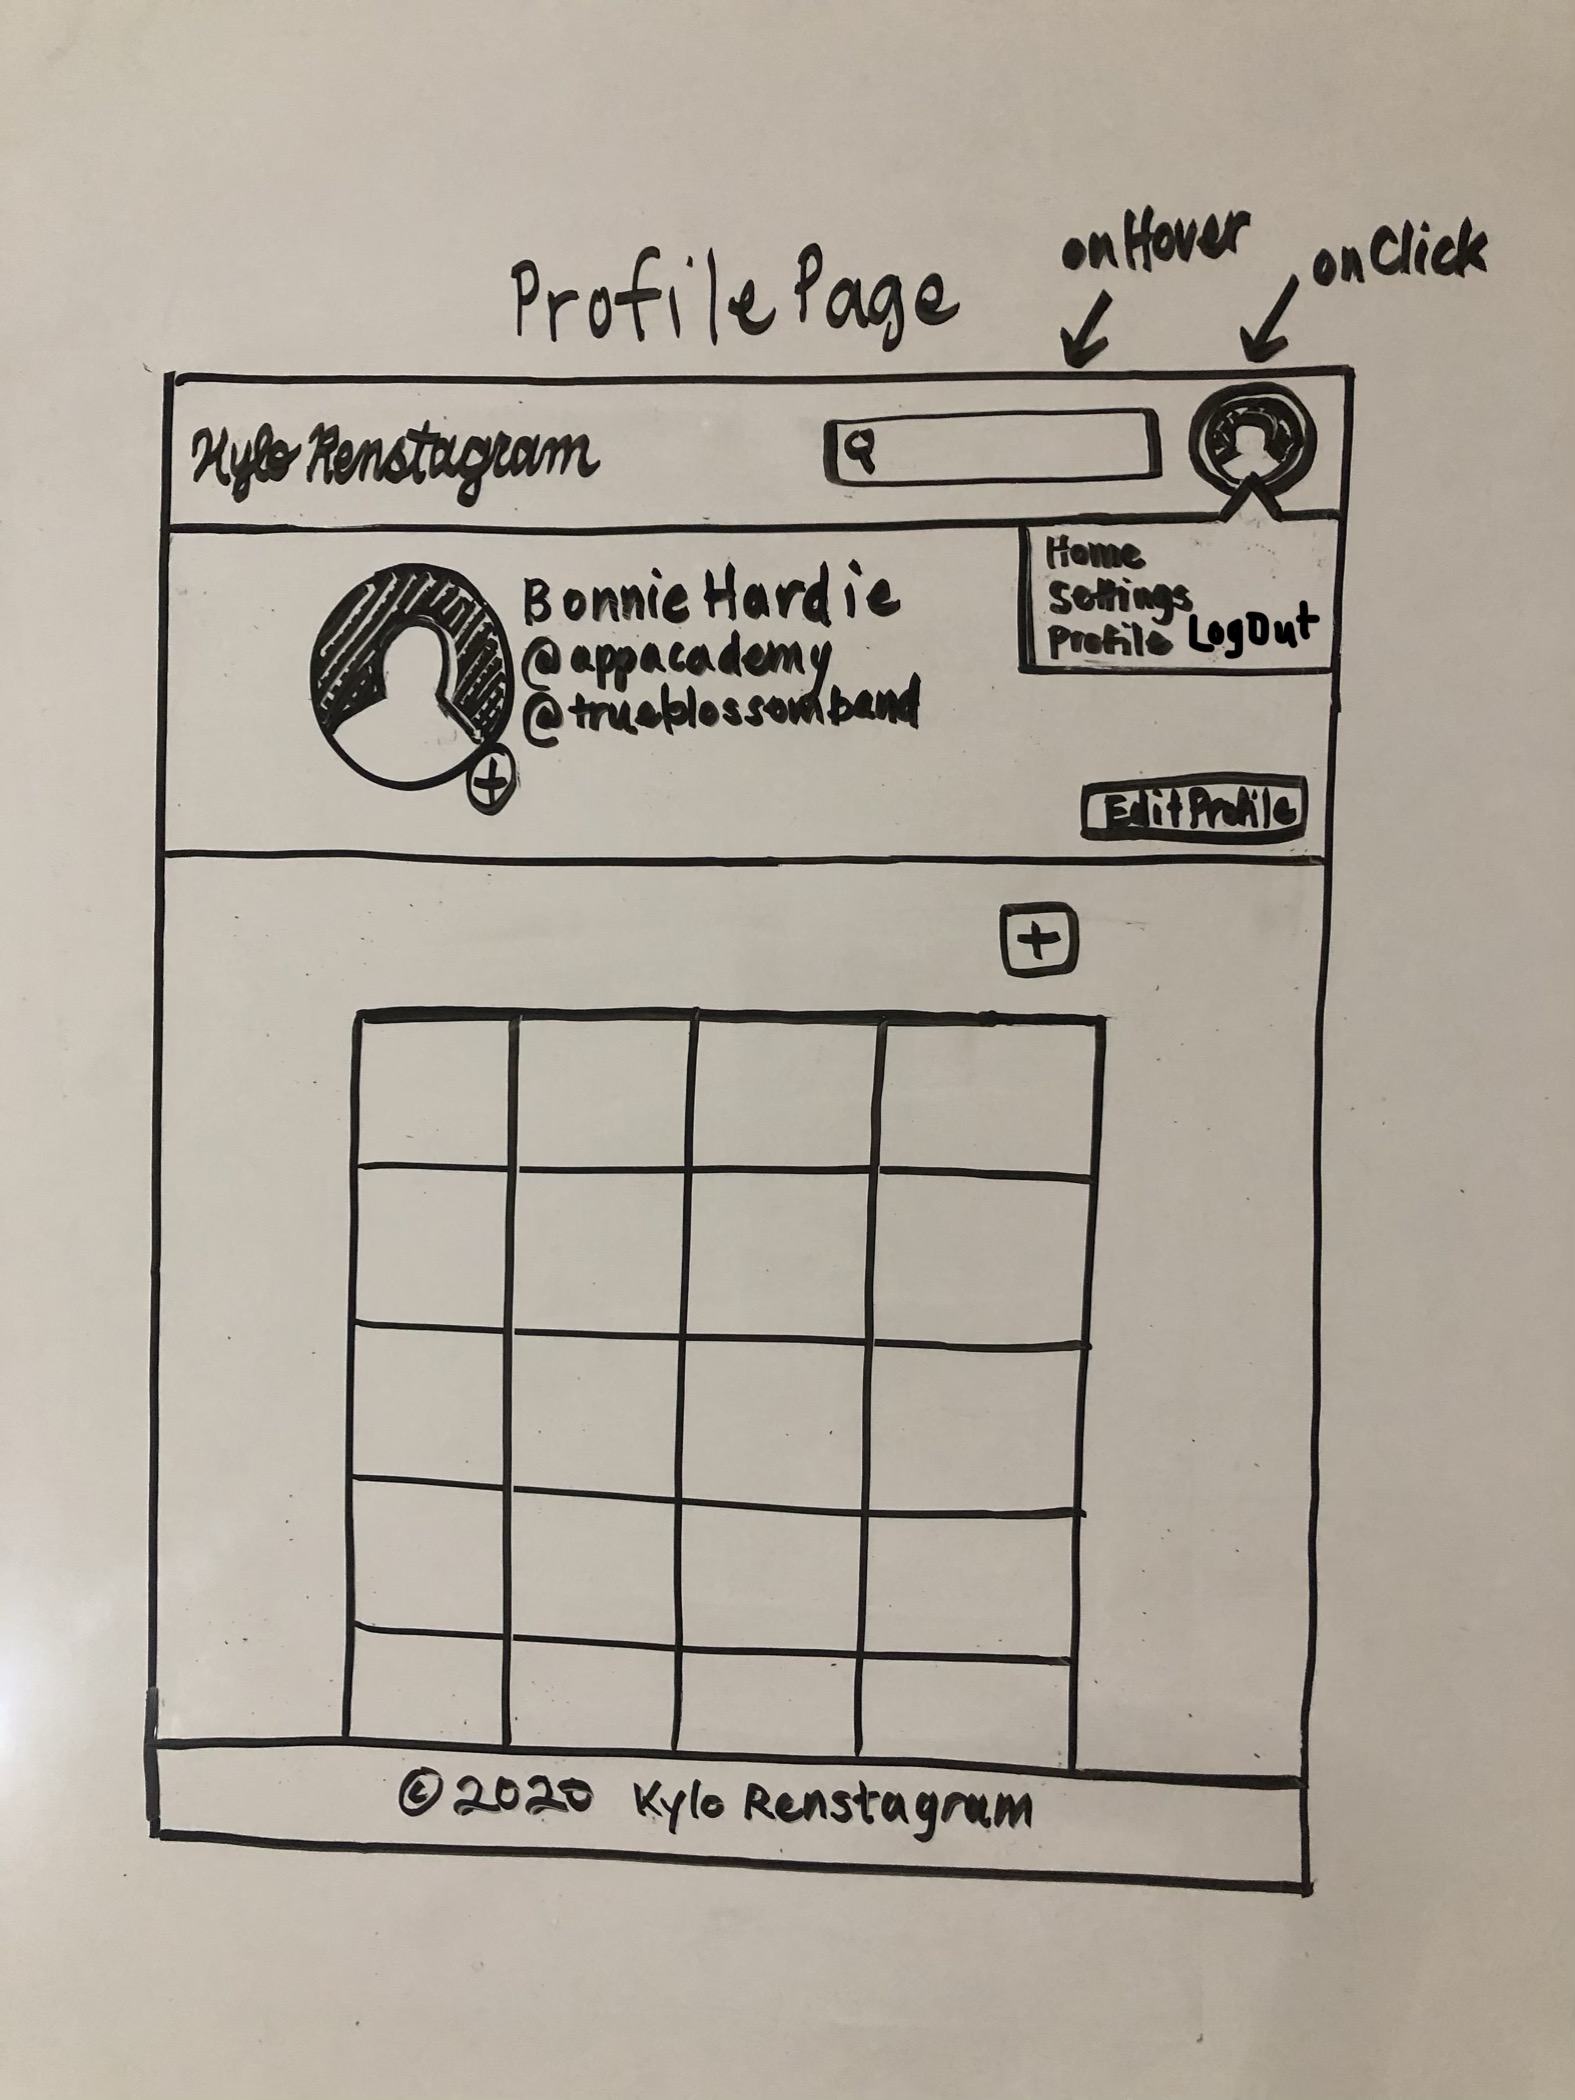 onHover
onClick
Profile Page
Kylo Renstagram
Home
Settings
Profile LogOut
Bonnie Hardie
@appacademy
@trueblossomband
Edit Profile
+
© 2020 Kylo Renstagram